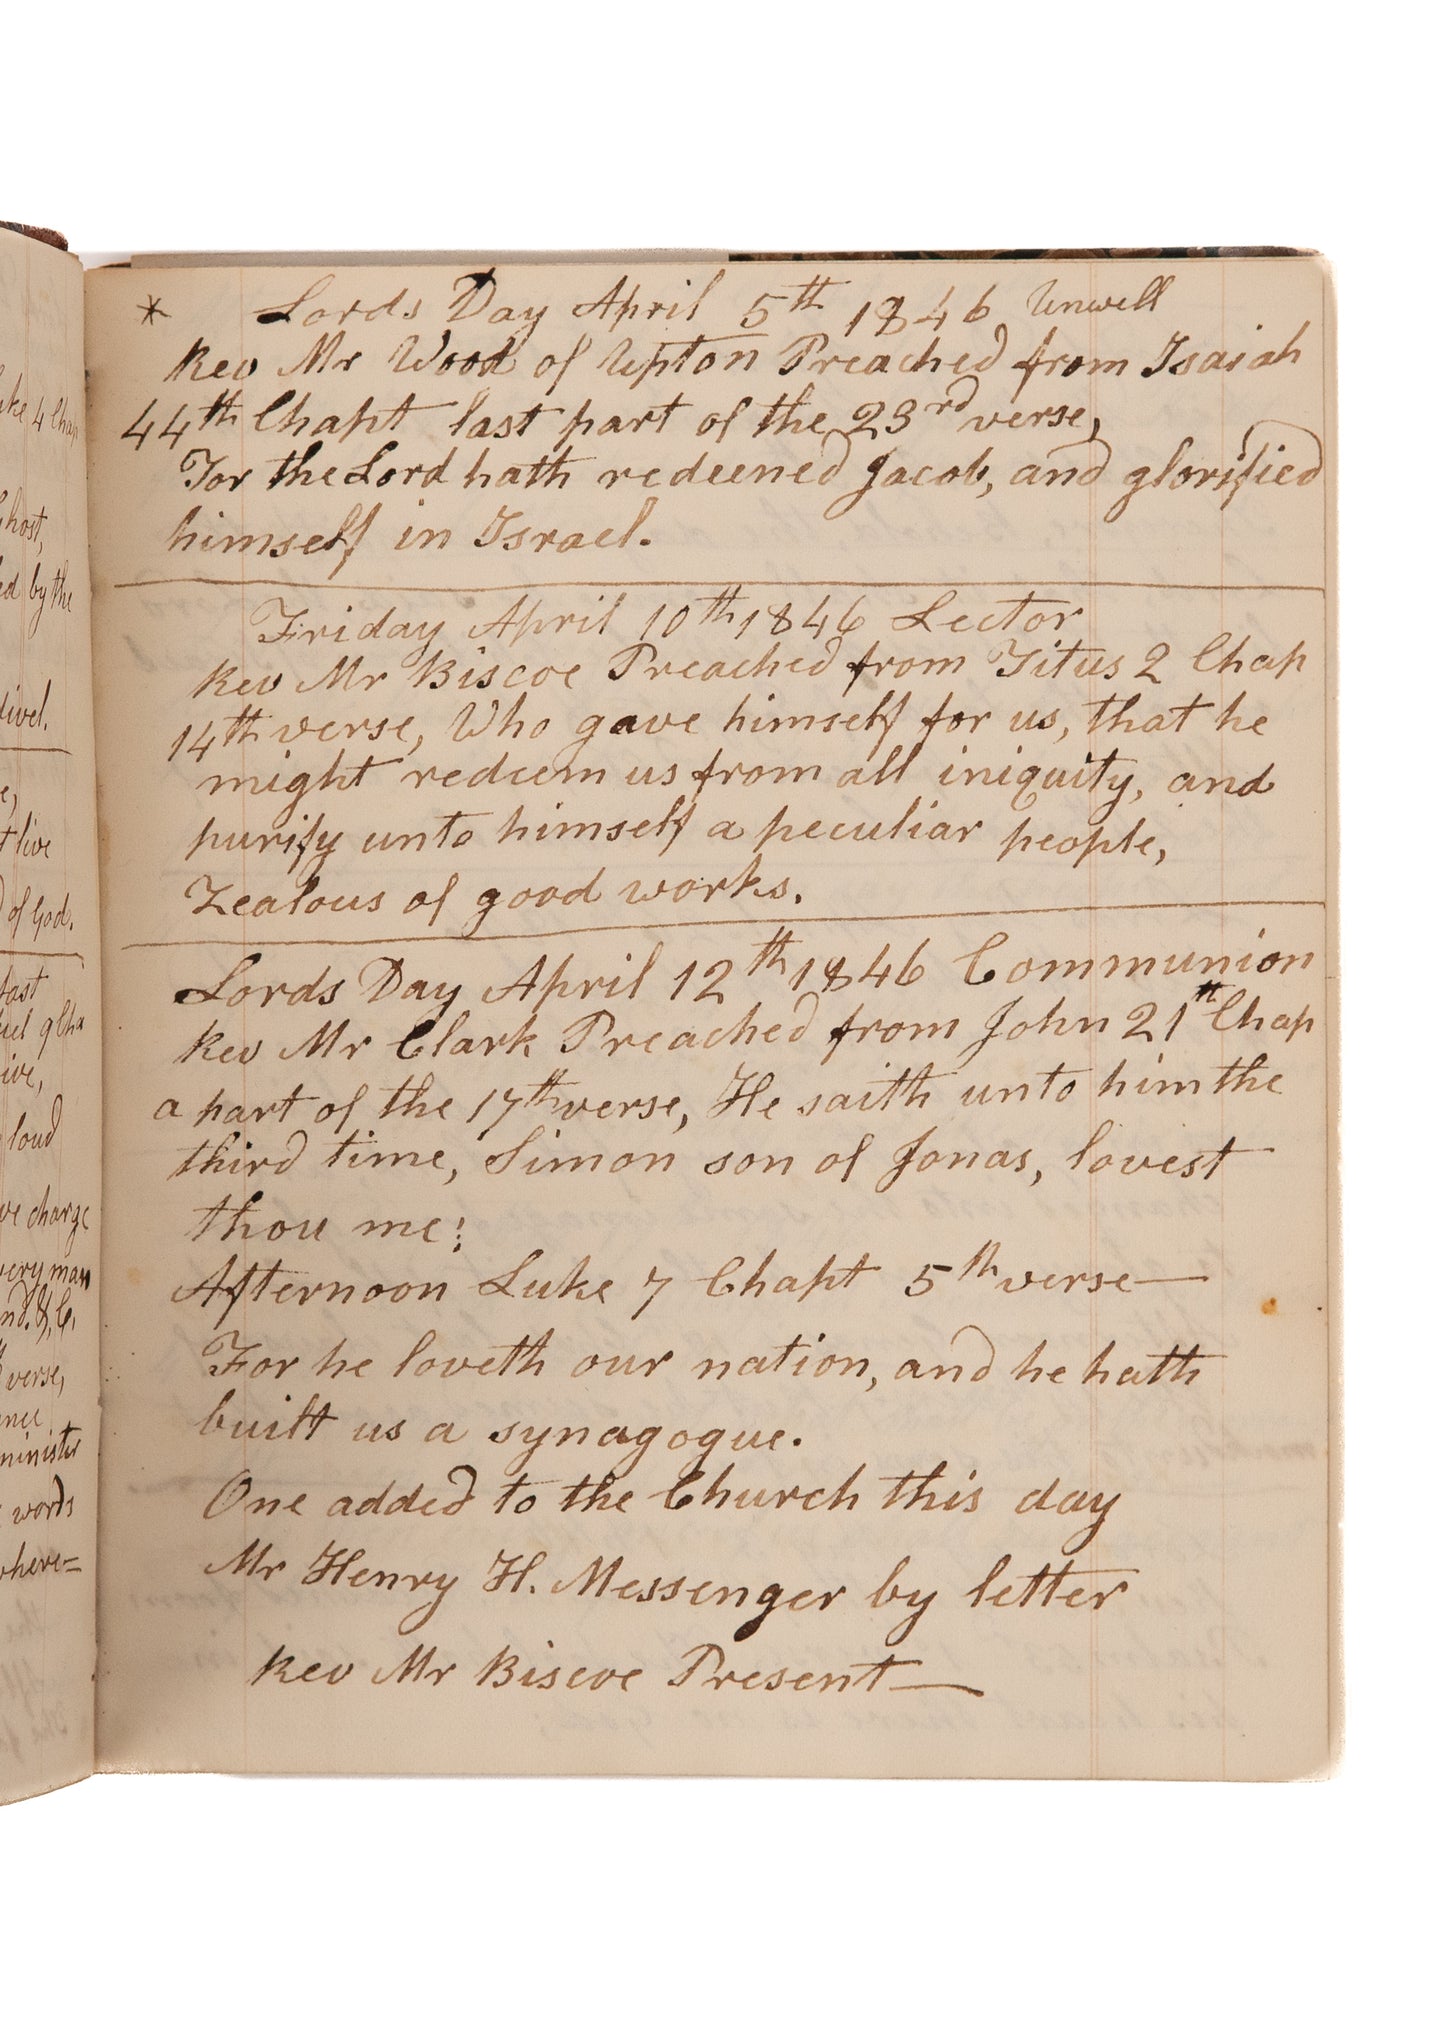 * Lords Day April 5th 1846 Unwell
Rev Mr Wood of Upton Preached from Isaiah
44th Chapt last part of the 23rd verse,
For the Lord hath redeemed Jacob, and glorified
himself in Israel.
Friday April 10th 1846 Lector
Rev Mr Biscoe Preached from Titus 2 Chap
14th verse, Who gave himself for us, that he
might redeem us from all iniquity, and
purify unto himself a peculiar people,
Zealous of good works.
Lords Day April 12th 1846 Communion
Rev Mr Clark Preached from John 21st Chap
a part of the 17th verse, He saith unto him the
third time, Simon son of Jonas, lovest
thou me;
Afternoon Luke 7 Chapt 5th verse—
For he loveth our nation, and he hath
built us a synagogue.
One added to the Church this day
Mr Henry H. Messenger by letter
Rev Mr Biscoe Present—
4 Chap
Ghost,
by the
live
of God.
loud
charge
every man
verse,
minister
words
where=